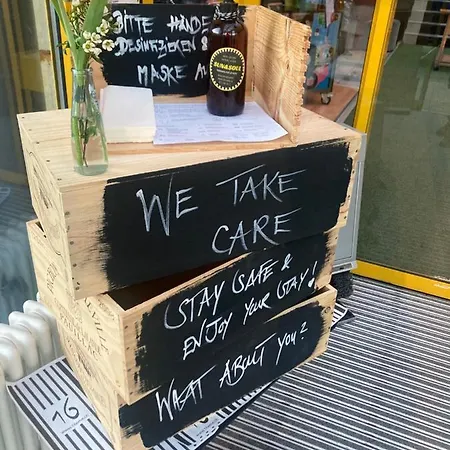 BITTE HÄNDE
DESINFIZIEREN &
MASKE AU
SUN&SOUL
WE TAKE
CARE
STAY SAFE &
ENJOY YOUR STAY!
WHAT ABOUT YOU?
16